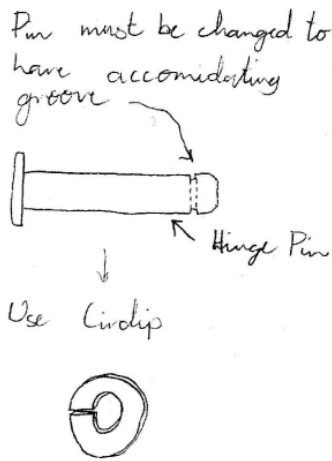 Pin must be changed to
have accomidating
groove
Hinge Pin
Use Circlip